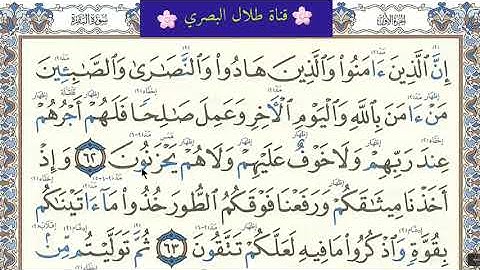 الجزء الأول قناة طلال البصري سورة البقرة
إِنَّ الَّذِينَ ءَامَنُوا وَالَّذِينَ هَادُوا وَالنَّصَارَىٰ وَالصَّابِئِينَ
مَنْ ءَامَنَ بِاللَّهِ وَالْيَوْمِ الْآخِرِ وَعَمِلَ صَالِحًا فَلَهُمْ أَجْرُهُمْ
عِندَ رَبِّهِمْ وَلَا خَوْفٌ عَلَيْهِمْ وَلَا هُمْ يَحْزَنُونَ ٦٢ وَإِذْ
أَخَذْنَا مِيثَاقَكُمْ وَرَفَعْنَا فَوْقَكُمُ الطُّورَ خُذُوا مَا ءَاتَيْنَاكُم
بِقُوَّةٍ وَاذْكُرُوا مَا فِيهِ لَعَلَّكُمْ تَتَّقُونَ ٦٣ ثُمَّ تَوَلَّيْتُم مِّنْ